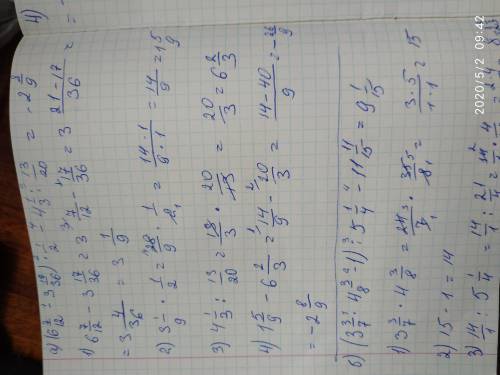 4)
а) (6 7/12 - 3 17/36) · 1/2 - 4 1/3 : 13/20 = -2 8/9
1) 6 7/12 - 3 17/36 = 3 7/12 - 17/36 = 3 21-17/36 =
= 3 4/36 = 3 1/9
2) 3 1/9 · 1/2 = 28/9 · 1/2 = 14·1/9·1 = 14/9 = 1 5/9
3) 4 1/3 : 13/20 = 13/3 · 20/13 = 20/3 = 6 2/3
4) 1 5/9 - 6 2/3 = 14/9 - 20/3 = 14-40/9 = -26/9
= -2 8/9
б) (3 3/7 · 4 3/8 - 1) : 5 1/4 - 11 11/15 = 9 1/15
1) 3 3/7 · 4 3/8 = 24/7 · 35/8 = 3·5/1·1 = 15
2) 15 - 1 = 14
3) 14 : 5 1/4 = 14/1 : 21/4 =
2020/5/2 09:44